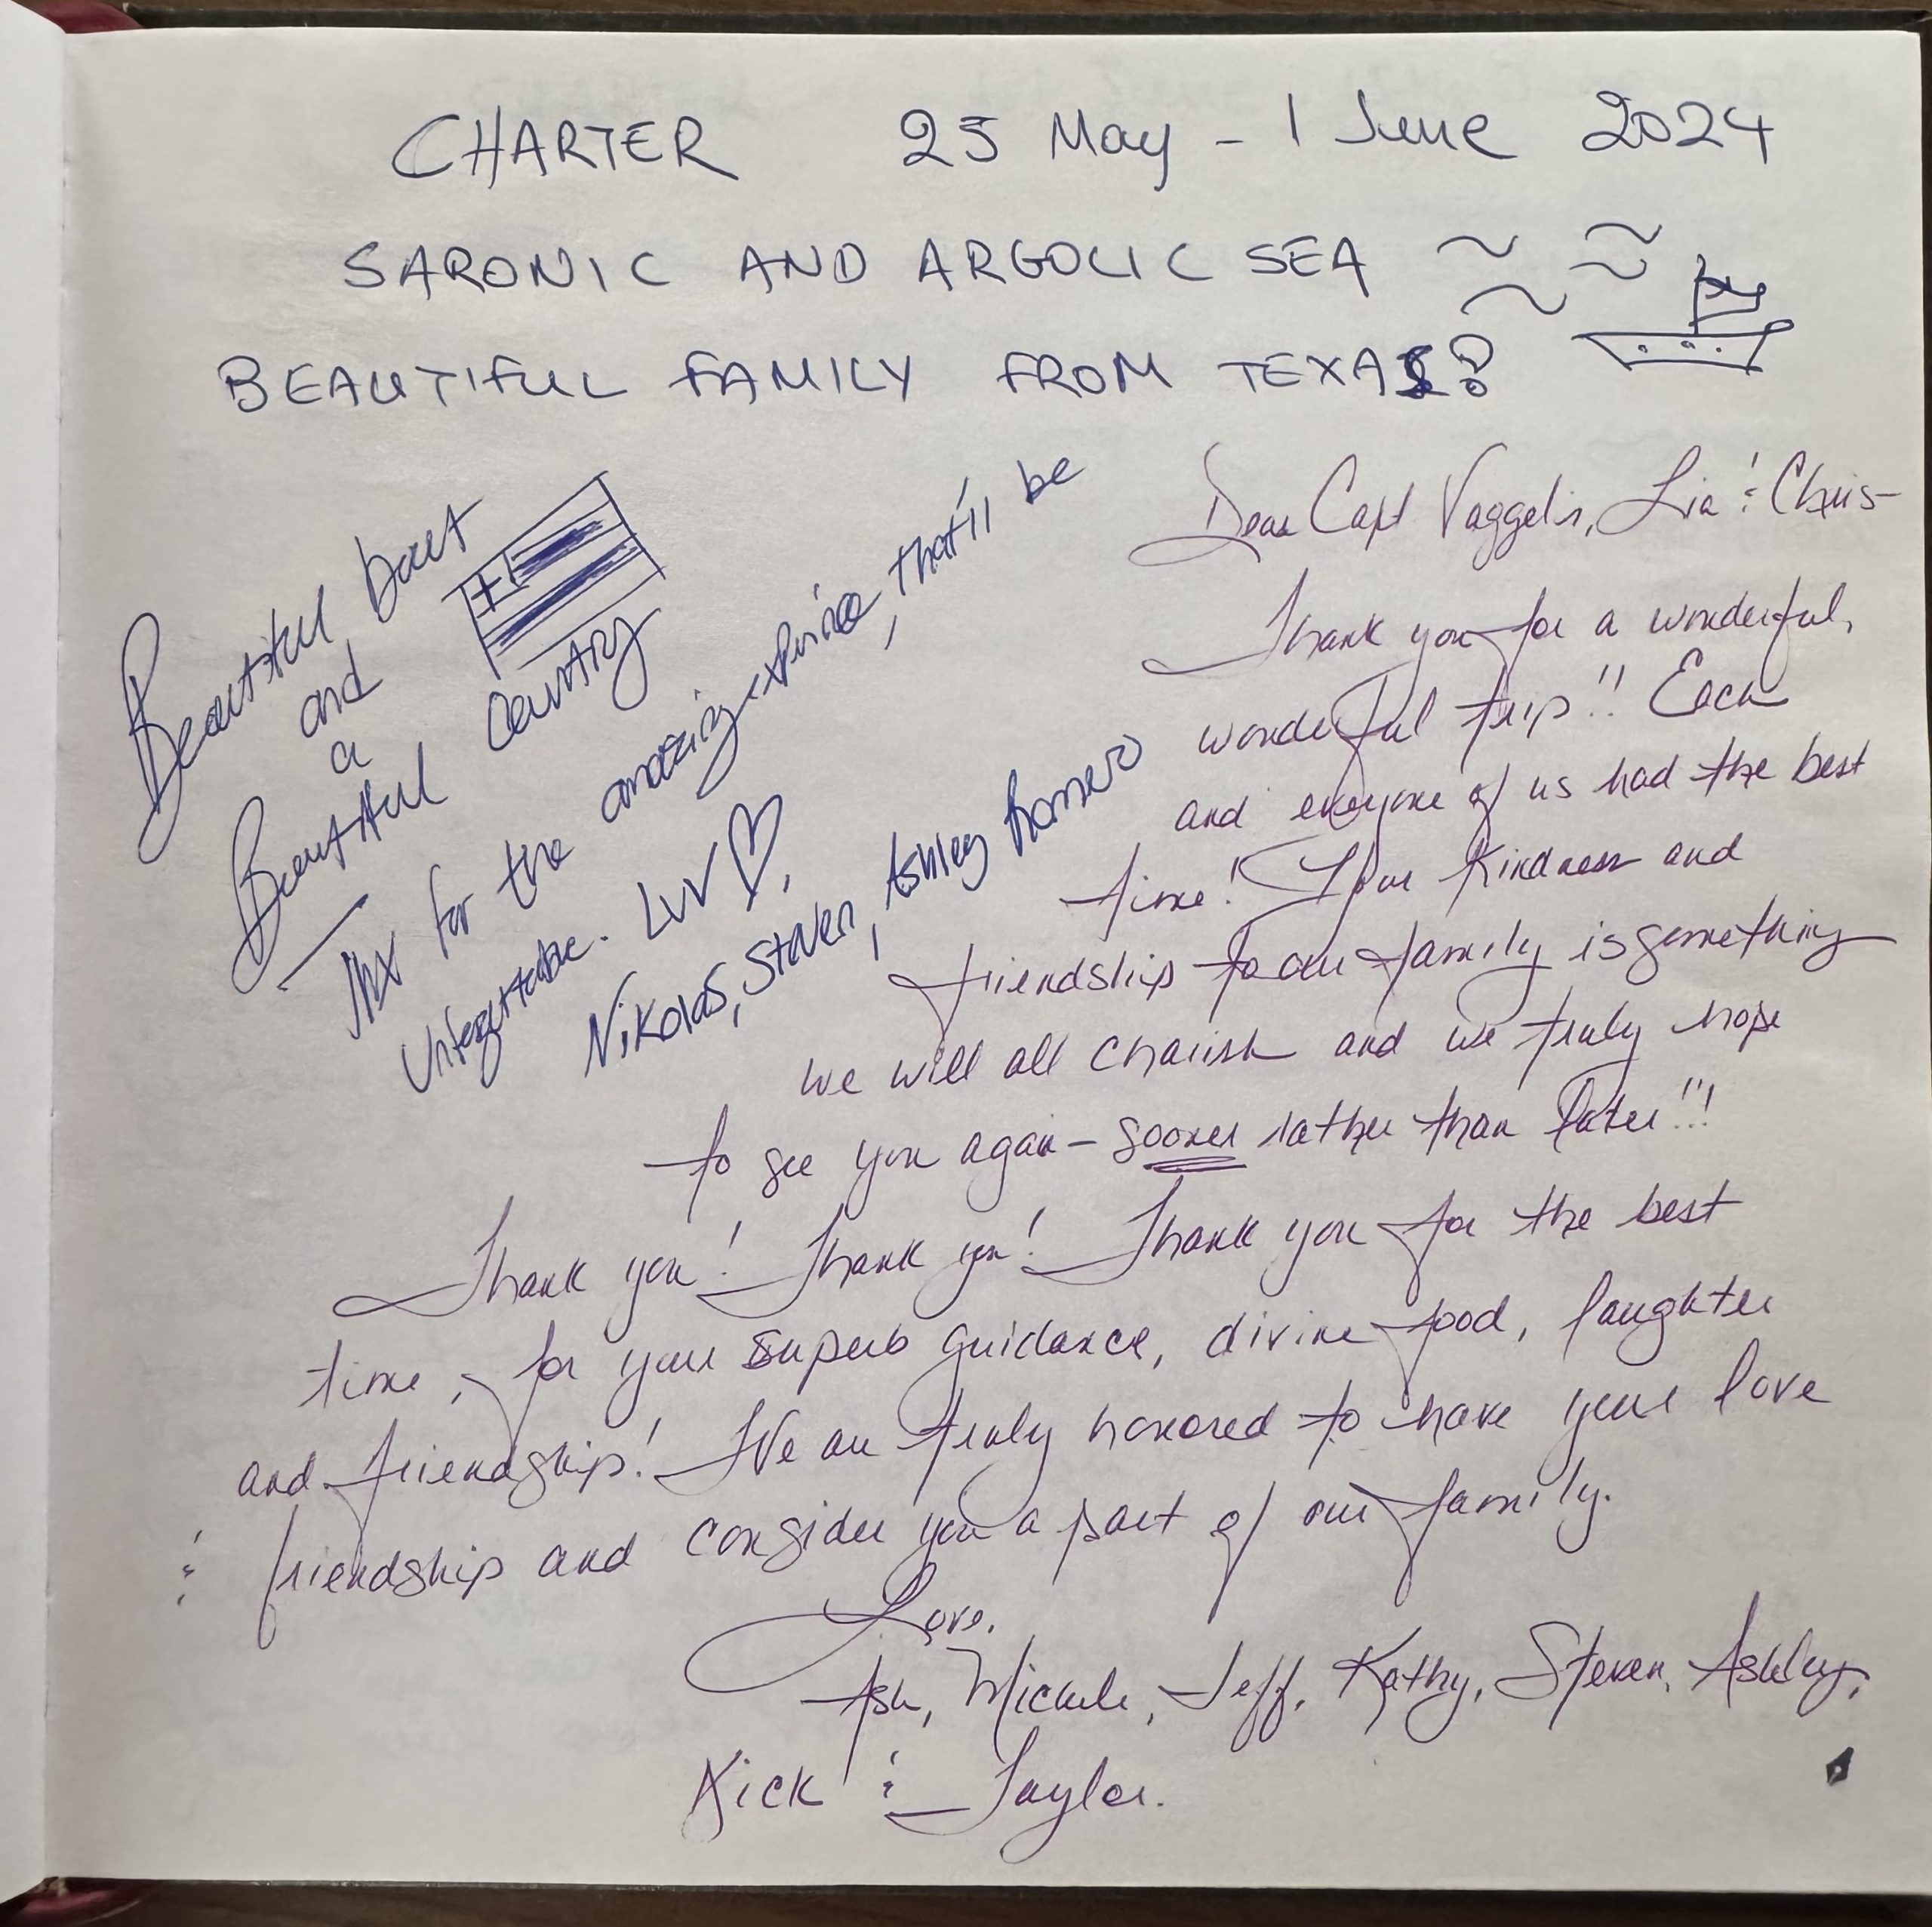 CHARTER 25 May - 1 June 2024
SARONIC AND ARGOLIC SEA
BEAUTIFUL FAMILY FROM TEXAS!
Beautiful boat
and
a
Beautiful Country
Thx for the amazing experince, that'll be
Unforgettable. Luv ♡,
Nikolas, Steven, Ashley Romero
Dear Capt Vaggelis, Lia & Chris-
Thank you for a wonderful,
wonderful trip!! Each
and everyone of us had the best
time! Your kindness and
friendship to our family is something
we will all cherish and we truly hope
to see you again - sooner rather than later!!!
Thank you! Thank you! Thank you for the best
time, for your superb guidance, divine food, laughter
and friendship! We are truly honored to have your love
& friendship and consider you a part of our family.
Love,
Ash, Michele, Jeff, Kathy, Steven, Ashley,
& Taylor.